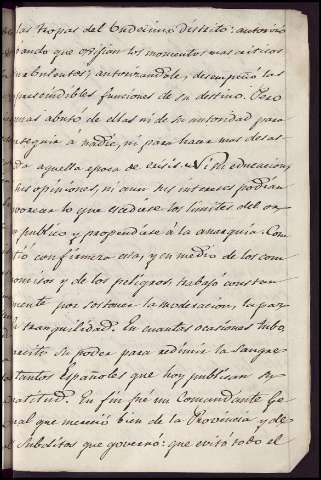 las tropas del Undecimo distrito: autorizo
ando que ecsijian los momentos mas criticos
turbulentos; autorizandole, desempeñó las
prescindibles funciones de su destino. Pero
mas abusó de ellas ni de su autoridad para
rseguir á nadie, ni para hacer mas desas
da aquella epoca de crisis. Ni su educacion,
sus opiniones, ni aun sus intereses podian
vorecer lo que ecediese los limites del or
publico y propendiese á la anarquia. Con
tó con firmeza esta, y en medio de los com
omisos y de los peligros trabajó constan
mente por sostener la moderacion, la paz
tranquilidad. En cuantas ocasiones tubo,
ercitó su poder para redimir la sangre
tantos Españoles que hoy publican su
ratitud. En fin fué un Comandante Ge
ral que mereció bien de la Provincia y de
Subditos que governó: que evitó todo el